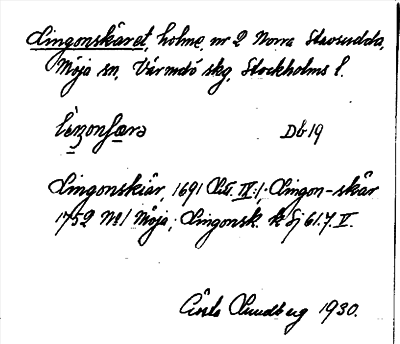 Lingonskäret, holme, nr 2 Norra Stavsudda,
Möja sn, Värmdö skg, Stockholms l.
Db 19
Lingonskiär, 1691 Litt. IX:1; Lingon-skär
1752 N:1 Möja; Lingonsk. k Sj 61.7.V.
Lundberg 1930.